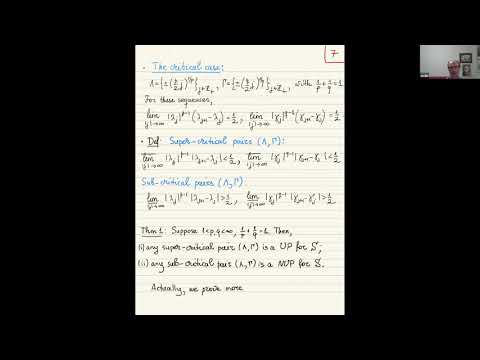 7
· The critical case:
Λ={±(p/2 j)^{1/p}}_{j∈ℤ₊}, Γ={±(q/2 j)^{1/q}}_{j∈ℤ₊}, with 1/p+1/q=1
For these sequences,
lim_{|j|→∞} |λ_j|^{p-1}(λ_{j+1}-λ_j)=1/2, lim_{|j|→∞} |γ_j|^{q-1}(γ_{j+1}-γ_j)=1/2
· Def: Super-critical pairs (Λ,Γ):
lim_{|j|→∞} |λ_j|^{p-1}|λ_{j+1}-λ_j|<1/2, lim_{|j|→∞} |γ_j|^{q-1}|γ_{j+1}-γ_j|<1/2
Sub-critical pairs (Λ,Γ):
lim_{|j|→∞} |λ_j|^{p-1}|λ_{j+1}-λ_j|>1/2, lim_{|j|→∞} |γ_j|^{q-1}|γ_{j+1}-γ_j|>1/2.
Thm 1: Suppose 1<p,q<∞, 1/p+1/q=1. Then,
(i) any super-critical pair (Λ,Γ) is a UP for S;
(ii) any sub-critical pair (Λ,Γ) is a NUP for S.
Actually, we prove more